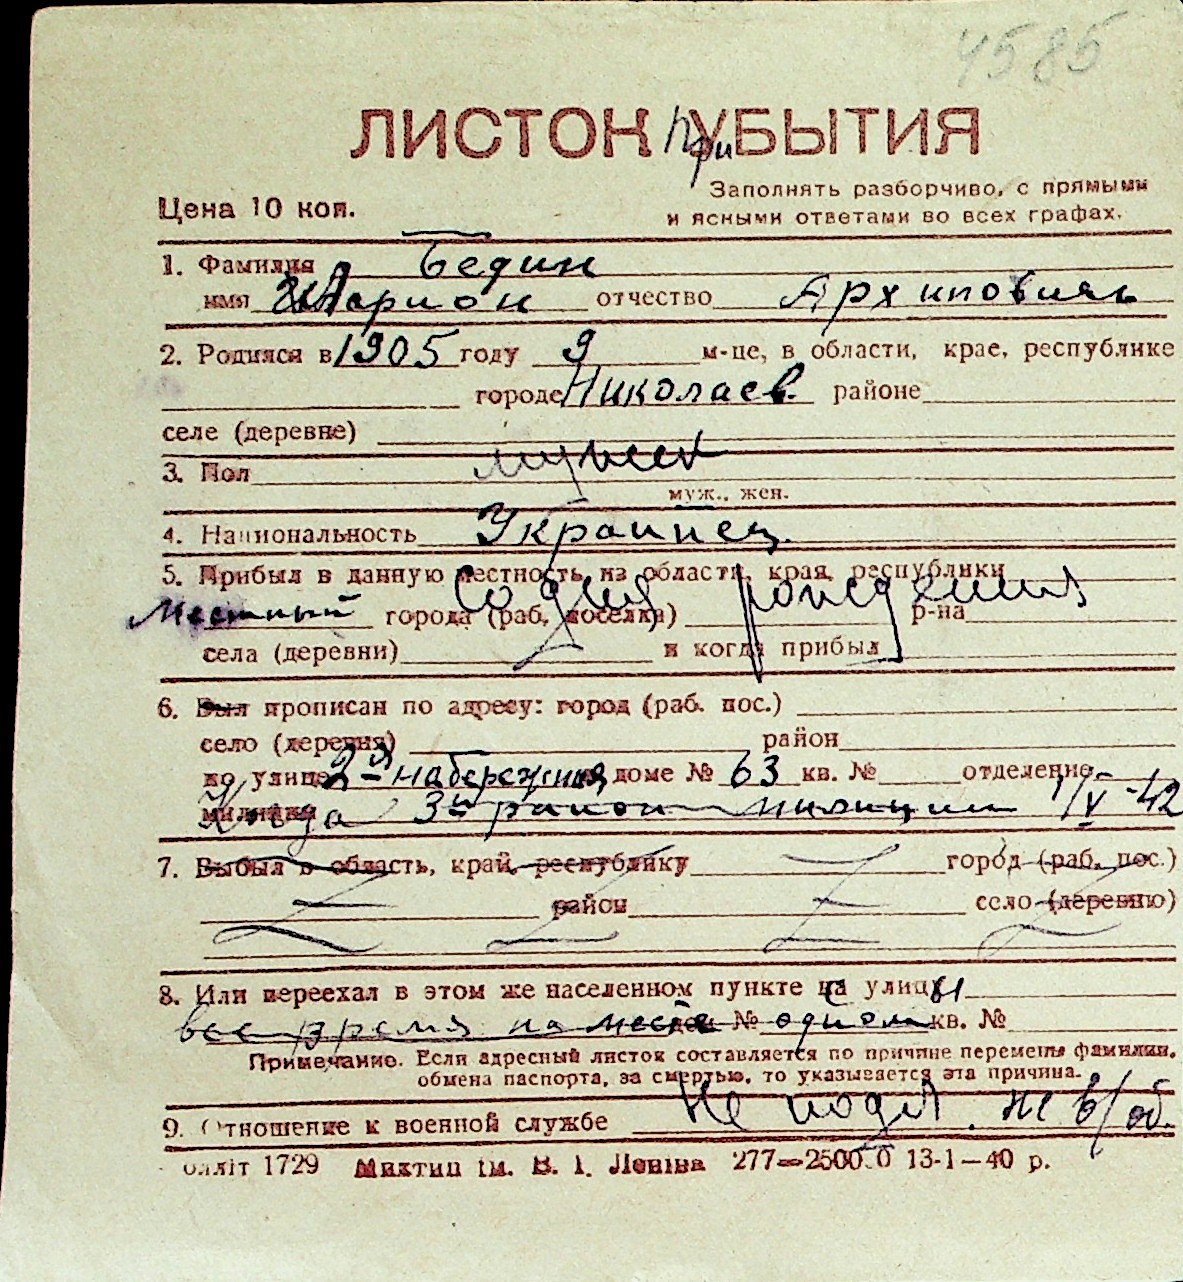 4585
ЛИСТОК при УБЫТИЯ
Цена 10 коп.
Заполнять разборчиво, с прямыми
и ясными ответами во всех графах.
1. Фамилия Бедин
имя Иларион отчество Архипович
2. Родился в 1905 году 9 м-це, в области, крае, республике
городе Николаев районе
селе (деревне)
3. Пол мужск
муж., жен.
4. Национальность Украинец
5. Прибыл в данную местность из области, края, республики
местный города (раб. поселка) со дня рождения р-на
села (деревни) и когда прибыл
6. Был прописан по адресу: город (раб. пос.)
село (деревня) район
по улице 2-я набережная доме № 63 кв. № отделение
милиции Когда 3м район милиции 1/V-42
7. Выбыл в область, край, республику город (раб. пос.)
район село (деревню)
8. Или переехал в этом же населенном пункте с улицы
все время на месте дом № одном кв. №
Примечание. Если адресный листок составляется по причине перемены фамилии,
обмена паспорта, за смертью, то указывается эта причина.
9. Отношение к военной службе не подл. не в/об.
1729 Миктип ім. В. І. Леніна 277—25000 13-1—40 р.